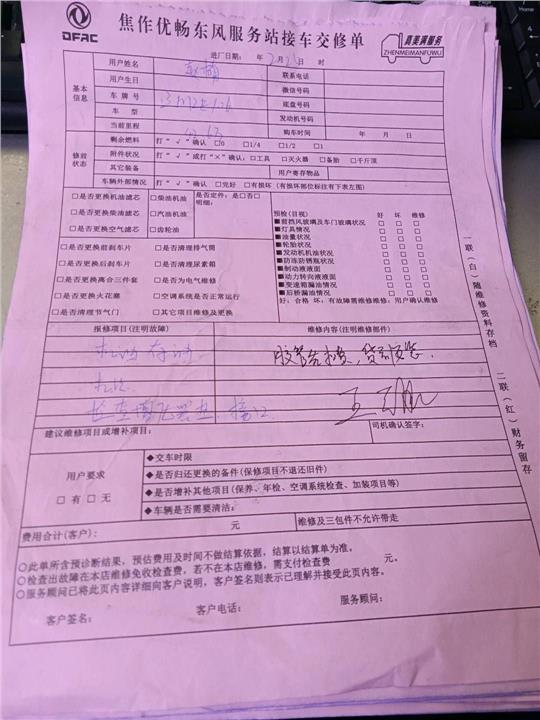 DFAC
焦作优畅东风服务站接车交修单
真美满服务
ZHENMEIMANFUWU
进厂日期: 年 2月2 日 时
基本信息
用户姓名 联系电话
用户生日 微信号码
车牌号 底盘号码
车型 发动机号
当前里程 购车时间 年 月 日
修前状态
剩余燃料 打“√”确认 □0 □1/4 □1/2 □1
附件状况 打“√”或打“×”确认:□工具 □灭火器 □备胎 □千斤顶
其它装备 用户寄存物品
车辆外部情况 打“√”确认 □完好 □有损坏(有损坏部位标注有下表左图)
□是否更换机油滤芯 □柴油机油 是否定件:是□否□
□是否更换柴油滤芯 □汽油机油 明细:
□是否更换空气滤芯 □齿轮油
□是否更换前刹车片 □是否清理排气筒
□是否更换后刹车片 □是否清理尿素箱
□是否更换离合三件套 □是否为电气维修
□是否更换火花塞 □空调系统是否正常运行
□是否清理节气门 □其它项目维修及更换
预检(目视) 好 坏 维修
■前挡风玻璃及车门玻璃状况 □ □ □
■灯具情况 □ □ □
■油量状况 □ □ □
■轮胎状况 □ □ □
■发动机机油状况 □ □ □
■防冻防锈瓶状况 □ □ □
■制动液液面 □ □ □
■动力转向液液面 □ □ □
■变速箱漏油情况 □ □ □
■后桥漏油情况 □ □ □
好:合格 坏:有故障需维修维修:用户确认维修
报修项目(注明故障) 维修内容(注明维修部件)
建议维修项目或增补项目: 司机确认签字:
用户要求
□有 □无
◆交车时限
◆是否归还更换的备件(保修项目不退还旧件)
◆是否增补其他项目(保养、年检、空调系统检查、加装项目等)
◆车辆是否需要清洁:
费用合计(客户): 元 维修及三包件不允许带走
○此单所含预诊断结果,预估费用及时间不做结算依据,结算以结算单为准。
○检查出故障在本店维修免收检查费,若不在本店维修,需支付检查费 元。
○服务顾问已将此页内容详细向客户说明,客户签名则表示已理解并接受此页内容。
客户签名: 客户电话: 服务顾问:
一联(白)随维修资料存档
二联(红)财务留存